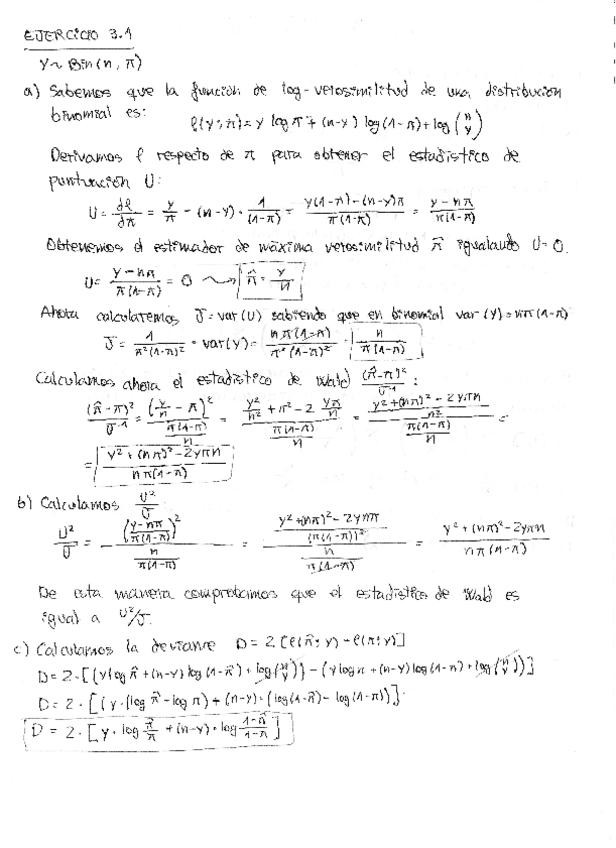 EJERCICIO 3.1
Y ~ Bin(n, π)
a) Sabemos que la función de log-verosimilitud de una distribución
binomial es: ℓ(y; π) = y log π + (n-y) log(1-π) + log (n y)
Derivamos ℓ respecto de π para obtener el estadístico de
puntuación U:
U = dℓ/dπ = y/π - (n-y) · 1/(1-π) = y(1-π)-(n-y)π / π(1-π) = y-nπ / π(1-π)
Obtenemos el estimador de máxima verosimilitud π̂ igualando U=0.
U = y-nπ / π(1-π) = 0 ⇝ π̂ = y/n
Ahora calculamos J = var(U) sabiendo que en binomial var(y) = nπ(1-π)
J = 1/π²(1-π)² · var(y) = nπ(1-π)/π²(1-π)² = n/π(1-π)
Calculamos ahora el estadístico de Wald (π̂-π)²/J⁻¹ :
(π̂-π)²/J⁻¹ = (y/n - π)² / π(1-π)/n = y²/n² + π² - 2 yπ/n / π(1-π)/n = y²+(nπ)²-2yπn/n² / π(1-π)/n =
= y²+(nπ)²-2yπn / nπ(1-π)
b) Calculamos U²/J
U²/J = (y-nπ / π(1-π))² / n/π(1-π) = y²+(nπ)²-2ynπ/(π(1-π))² / n/π(1-π) = y²+(nπ)²-2yπn / nπ(1-π)
De esta manera comprobamos que el estadístico de Wald es
igual a U²/J.
c) Calculamos la deviance D = 2[ℓ(π̂; y) - ℓ(π; y)]
D = 2·[(y log π̂ + (n-y) log (1-π̂) + log(n y)) - (y log π + (n-y) log (1-π) + log (n y))]
D = 2·[(y·(log π̂ - log π) + (n-y)·(log(1-π̂) - log(1-π))]
D = 2·[y·log π̂/π + (n-y)·log 1-π̂/1-π]